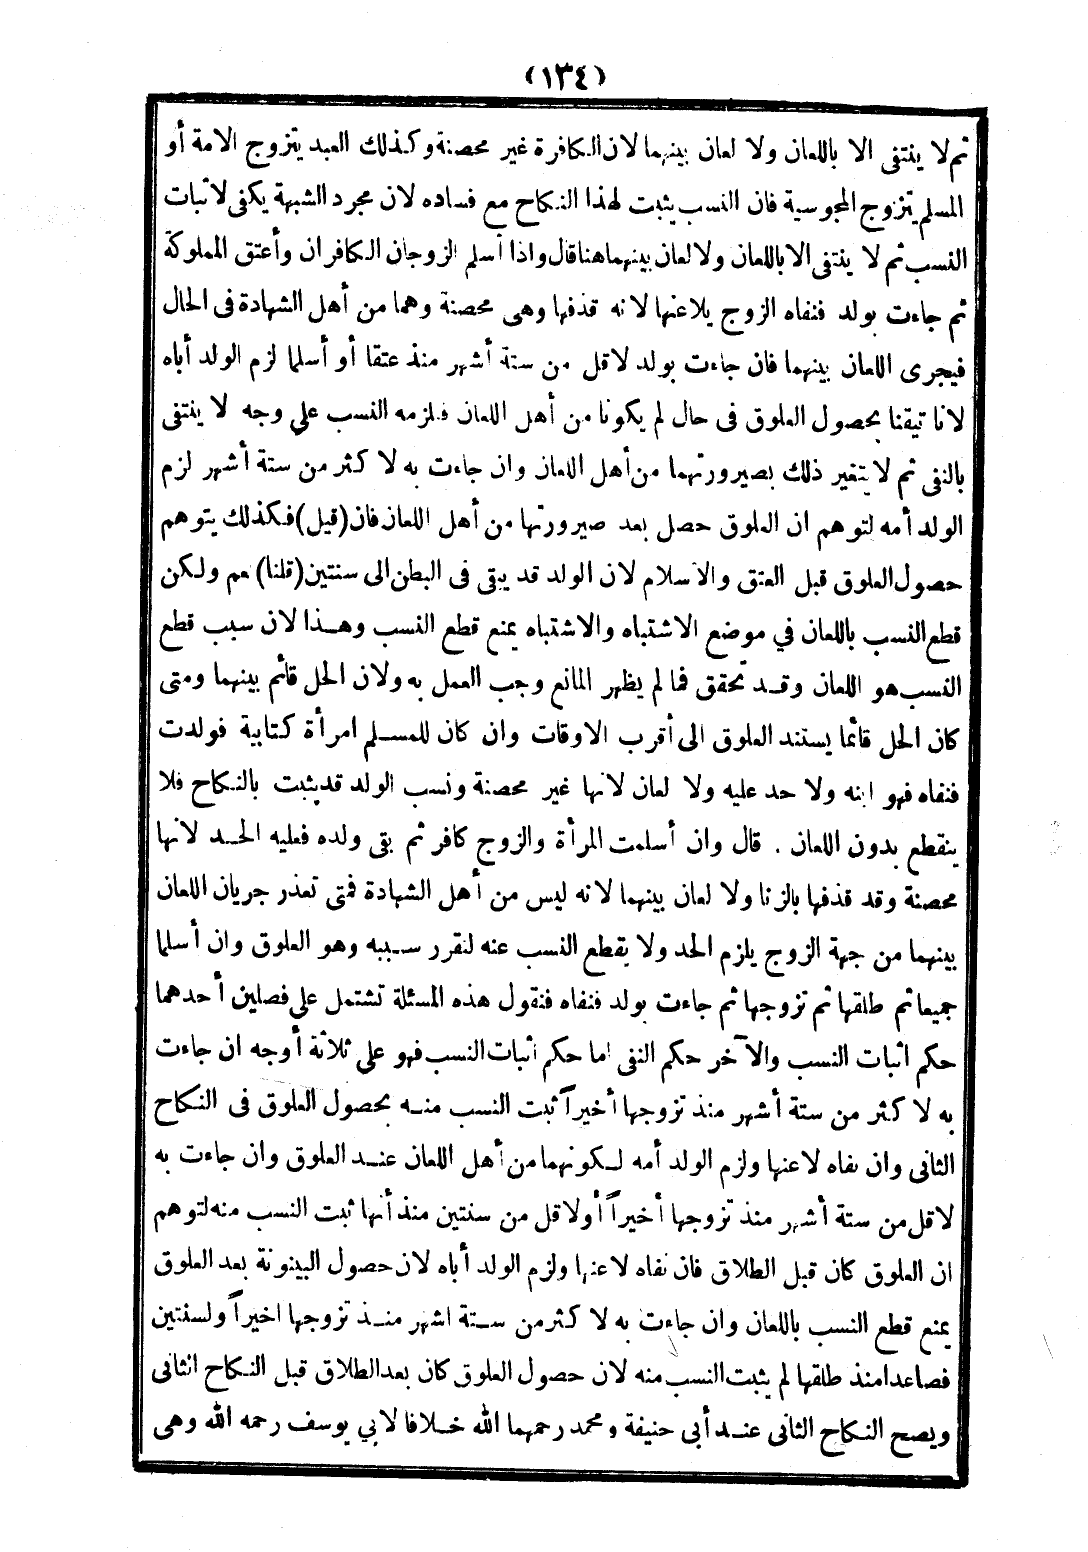 (١٣٤)
ثم لا ينتفى الا باللعان ولا لعان بينهما لان الكافرة غير محصنة وكذلك العبد يتزوج الامة أو
المسلم يتزوج المجوسية فان النسب يثبت لهذا النكاح مع فساده لان مجرد الشبهة يكفى لاثبات
النسب ثم لا ينتفى الا باللعان ولا لعان بينهما هنا قال واذا أسلم الزوجان الكافران وأعتق المملوكة
ثم جاءت بولد فنفاه الزوج يلاعنها لانه قذفها وهى محصنة وهما من أهل الشهادة فى الحال
فيجرى اللعان بينهما فان جاءت بولد لاقل من ستة أشهر منذ عتقا أو أسلما لزم الولد أباه
لانا تيقنا بحصول العلوق فى حال لم يكونا من أهل اللعان فلزمه النسب علي وجه لا ينتفى
بالنفى ثم لا يتغير ذلك بصيرورتهما من أهل اللعان وان جاءت به لا كثر من ستة أشهر لزم
الولد أمه لتوهم ان العلوق حصل بعد صيرورتها من أهل اللعان فان (قيل) فكذلك يتوهم
حصول العلوق قبل العتق والاسلام لان الولد قد يبقى فى البطن الى سنتين (قلنا) نعم ولكن
قطع النسب باللعان في موضع الاشتباه والاشتباه يمنع قطع النسب وهذا لان سبب قطع
النسب هو اللعان وقد تحقق فما لم يظهر المانع وجب العمل به ولان الحل قائم بينهما ومتى
كان الحل قائما يستند العلوق الى أقرب الاوقات وان كان للمسلم امرأة كتابية فولدت
فنفاه فهو ابنه ولا حد عليه ولا لعان لانها غير محصنة ونسب الولد قد يثبت بالنكاح فلا
ينقطع بدون اللعان . قال وان أسلمت المرأة والزوج كافر ثم نفى ولده فعليه الحد لانها
محصنة وقد قذفها بالزنا ولا لعان بينهما لانه ليس من أهل الشهادة فمتى تعذر جريان اللعان
بينهما من جهة الزوج يلزم الحد ولا يقطع النسب عنه لتقرر سببه وهو العلوق وان أسلما
جميعا ثم طلقها ثم تزوجها ثم جاءت بولد فنفاه فنقول هذه المسئلة تشتمل على فصلين أحدهما
حكم اثبات النسب والآخر حكم النفى اما حكم اثبات النسب فهو على ثلاثة أوجه ان جاءت
به لا كثر من ستة أشهر منذ تزوجها أخيراً ثبت النسب منه بحصول العلوق فى النكاح
الثانى وان نفاه لاعنها ولزم الولد أمه لكونهما من أهل اللعان عند العلوق وان جاءت به
لاقل من ستة أشهر منذ تزوجها أخيراً أو لاقل من سنتين منذ أبنها ثبت النسب منه لتوهم
ان العلوق كان قبل الطلاق فان نفاه لاعنها ولزم الولد أباه لان حصول البينونة بعد العلوق
يمنع قطع النسب باللعان وان جاءت به لا كثر من ستة اشهر منذ تزوجها اخيراً ولسنتين
فصاعدا منذ طلقها لم يثبت النسب منه لان حصول العلوق كان بعد الطلاق قبل النكاح الثانى
ويصح النكاح الثانى عند أبى حنيفة ومحمد رحمهما الله خلافا لابي يوسف رحمه الله وهى